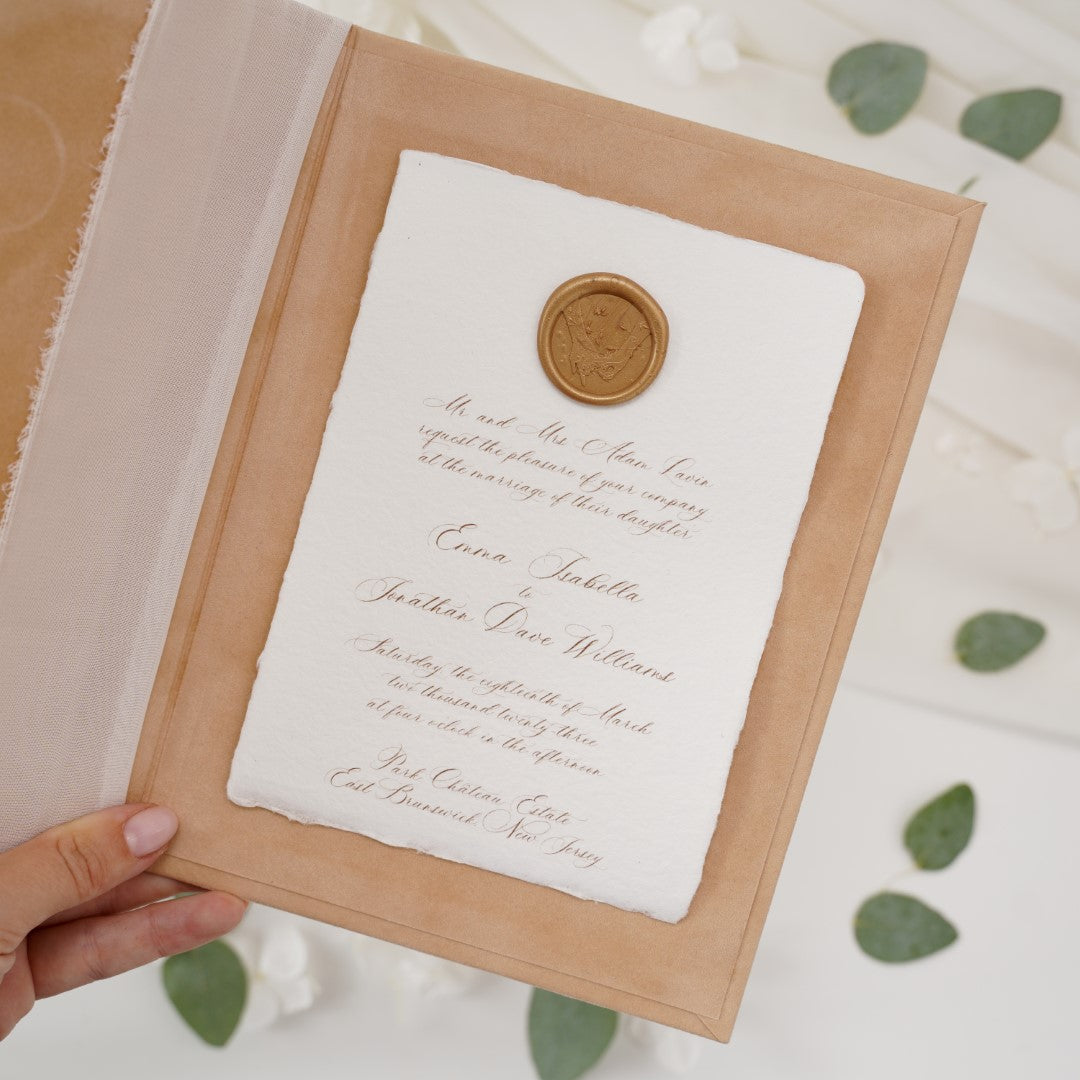 Mr and Mrs Adam Lavin
request the pleasure of your company
at the marriage of their daughter
Emma Isabella
to
Jonathan Dave Williams
Saturday the eighteenth of March
two thousand twenty-three
at four o'clock in the afternoon
Park Château Estate
East Brunswick, New Jersey